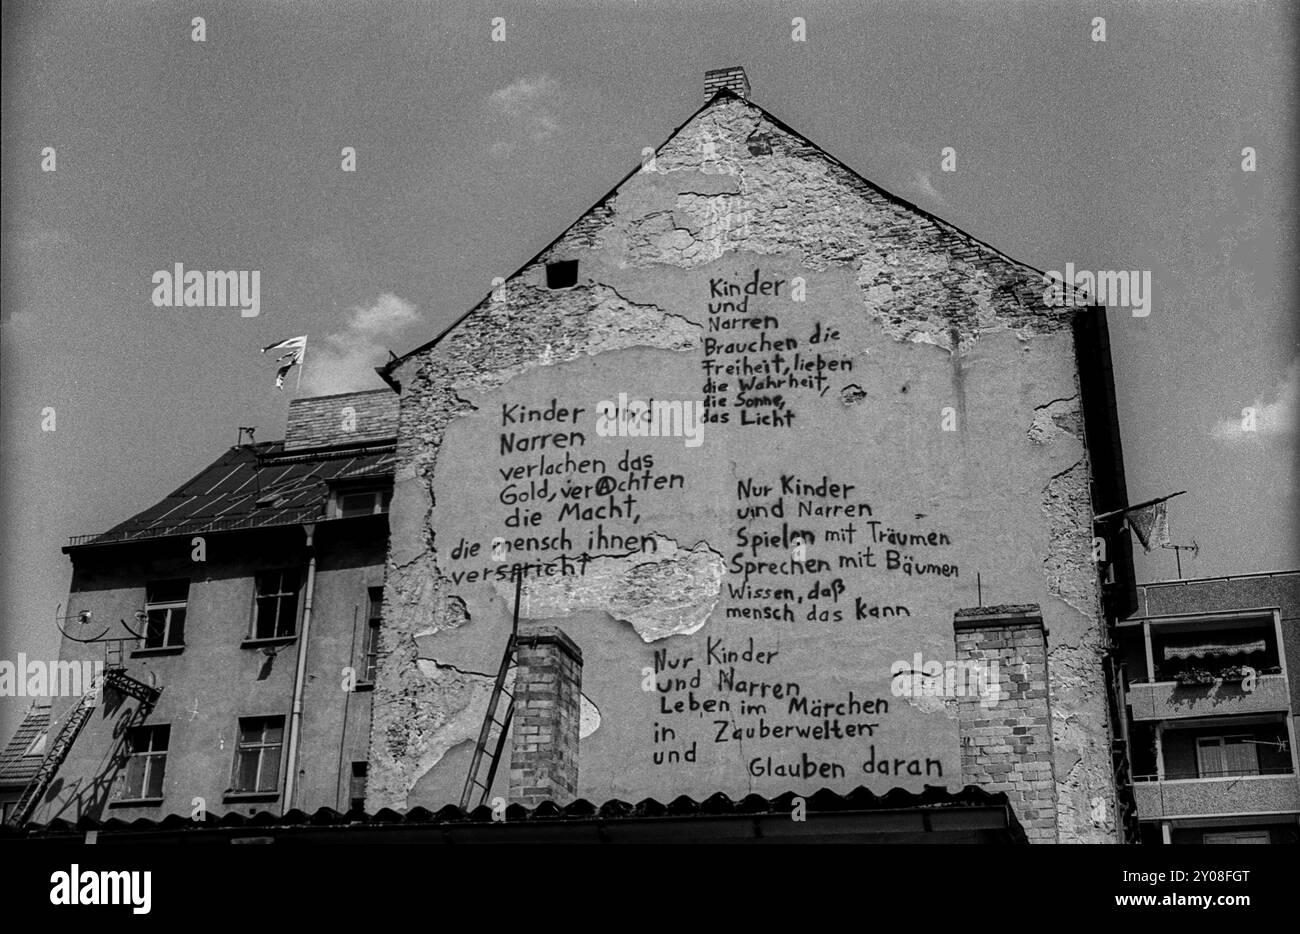 Kinder
und
Narren
Brauchen die
Freiheit, lieben
die Wahrheit,
die Sonne,
das Licht
Kinder und
Narren
verlachen das
Gold, verAchten
die Macht,
die mensch ihnen
verspricht
Nur Kinder
und Narren
Spielen mit Träumen
Sprechen mit Bäumen
Wissen, daß
mensch das kann
Nur Kinder
und Narren
Leben im Märchen
in Zauberwelten
und Glauben daran
alamy
alamy
a
a
a
a
a
a
a
a
alamy
Image ID: 2Y08FGT
www.alamy.com